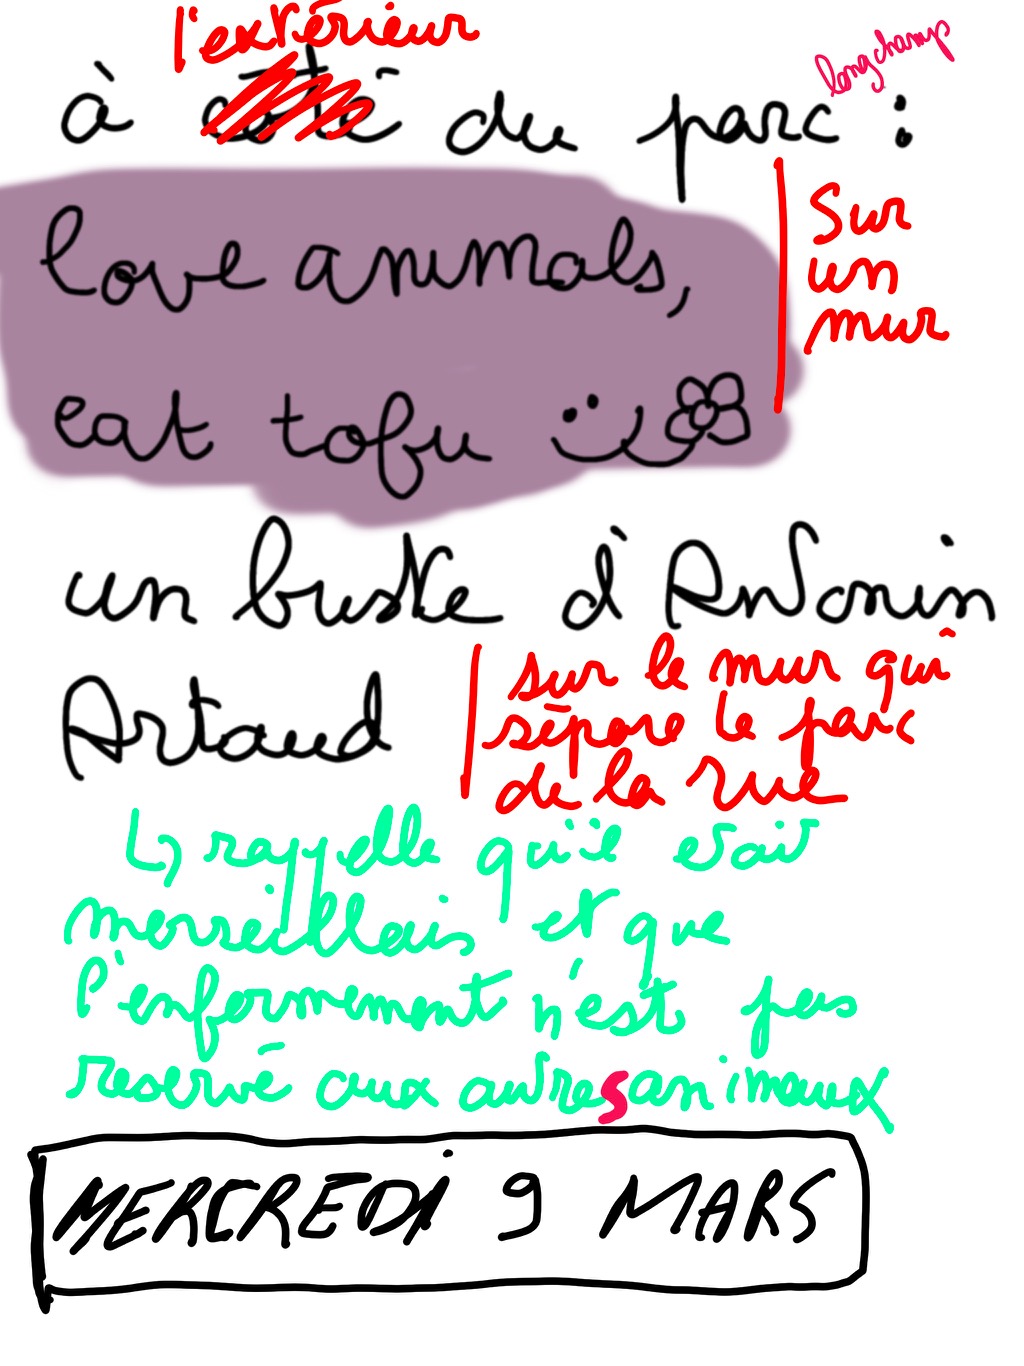 l'extérieur
longchamp
à côté du parc :
love animals,
eat tofu
sur
un
mur
un buste d'Antonin
Artaud
sur le mur qui
sépare le parc
de la rue
rappelle qu'il était
marseillais et que
l'enfermement n'est pas
reservé aux autres animaux
MERCREDI 9 MARS